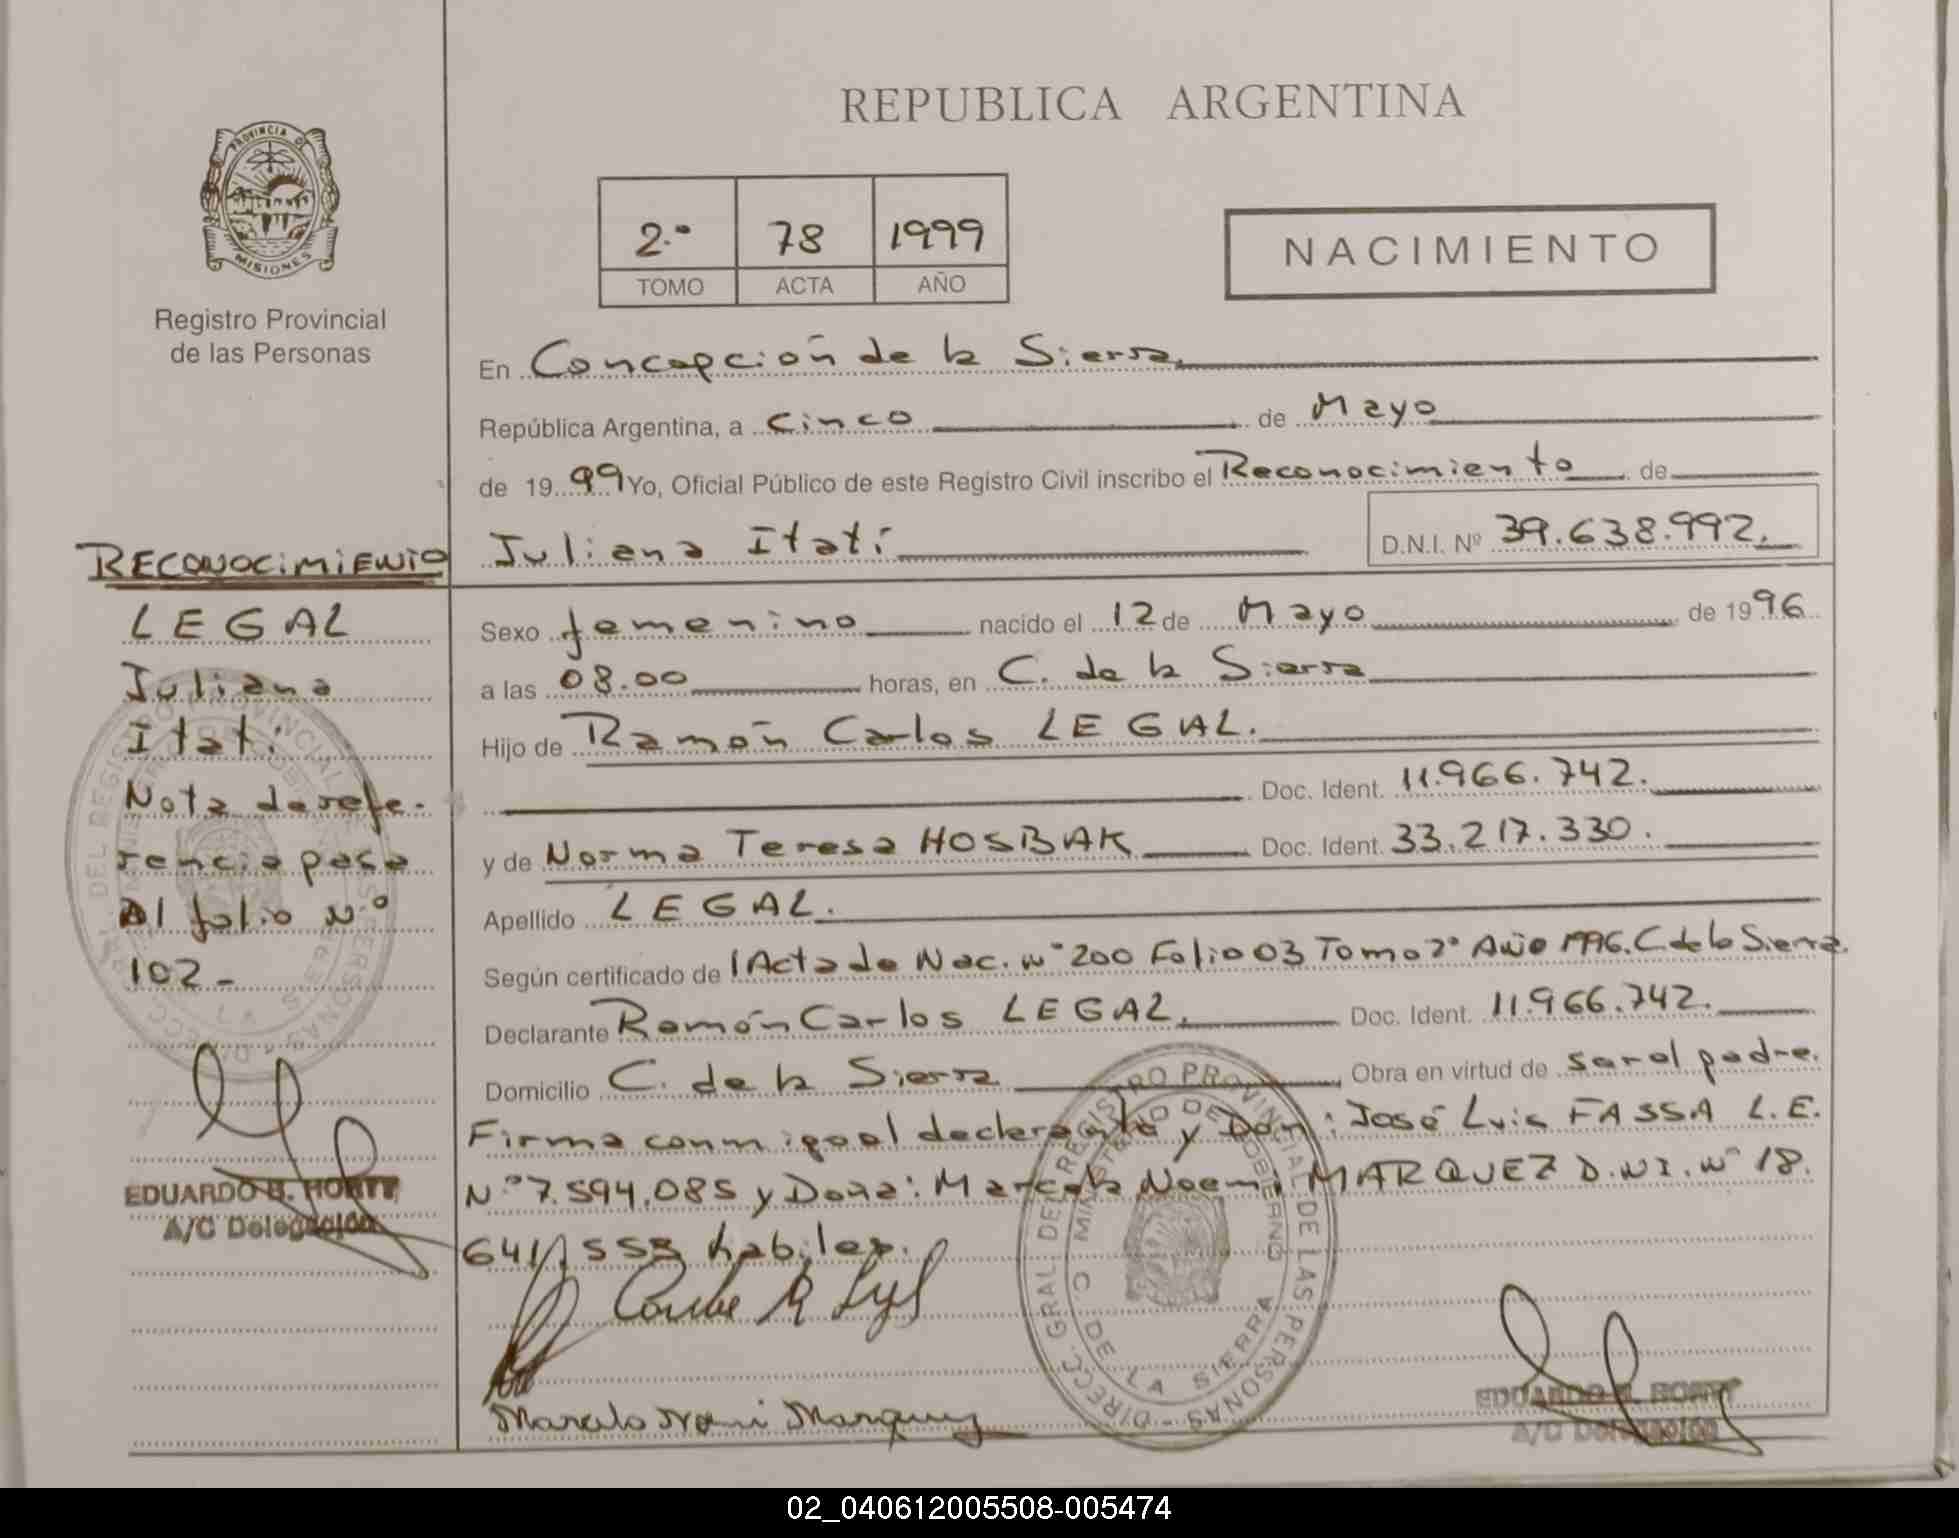 REPUBLICA ARGENTINA
PROVINCIA DE
MISIONES
Registro Provincial
de las Personas
2.º 78 1999
TOMO ACTA AÑO
NACIMIENTO
En Concepción de la Sierra
República Argentina, a Cinco de Mayo
de 1999 Yo, Oficial Público de este Registro Civil inscribo el Reconocimiento de
Juliana Itatí
D.N.I. Nº 39.638.992.
Sexo femenino nacido el 12 de Mayo de 1996
a las 08.00 horas, en C. de la Sierra
Hijo de Ramón Carlos LEGAL.
Doc. Ident. 11.966.742.
y de Norma Teresa HOSBAK Doc. Ident. 33.217.330.
Apellido LEGAL.
Según certificado de 1 Acta de Nac. nº 200 Folio 03 Tomo 2º Año 1996. C de la Sierra.
Declarante Ramón Carlos LEGAL. Doc. Ident. 11.966.742.
Domicilio C. de la Sierra, Obra en virtud de ser el padre.
Firma conmigo el declarante y Don: José Luis FASSA L.E.
Nº 7.594.085 y Doña: Marcela Noemi MARQUEZ D.N.I. Nº 18.
641.553 habiles.
Marcela Noemi Marquez
RECONOCIMIENTO
LEGAL
Juliana
Itatí
Nota de refe-
rencia pasa
Al folio Nº
102-
EDUARDO H.
A/C Delegación
DIRECC. GRAL. DEL REGISTRO PROVINCIAL DE LAS PERSONAS
MINISTERIO DE GOBIERNO
C DE LA SIERRA
EDUARDO H.
A/C Delegación
02_040612005508-005474